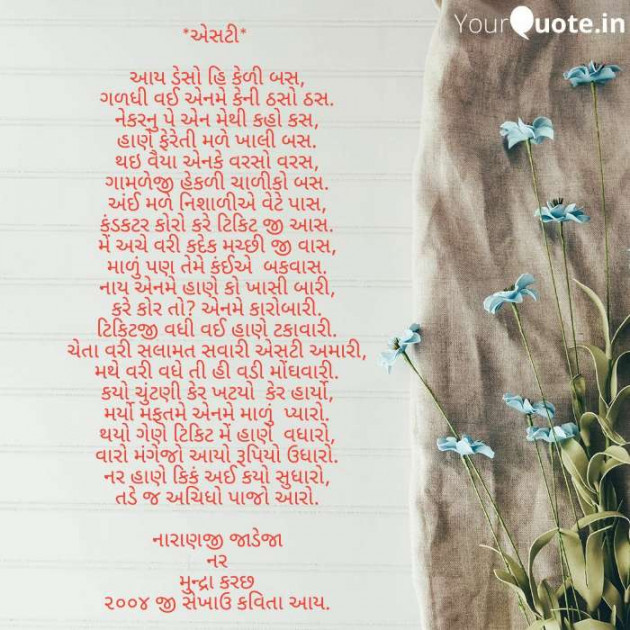 YourQuote.in
*એસટી*
આય ડેસો હિ કેળી બસ,
ગળધી વઈ એનમે કેની ઠસો ઠસ.
નેકરનુ પે એન મેથી કહો કસ,
હાણે ફેરેતી મળે ખાલી બસ.
થઇ વૈયા એનકે વરસો વરસ,
ગામળેજી હેકળી ચાળીકો બસ.
અંઈ મળે નિશાળીએ વેટે પાસ,
કંડકટર કોરો કરે ટિકિટ જી આસ.
મેં અચે વરી કદેક મચ્છી જી વાસ,
માળું પણ તેમે કંઈએ બકવાસ.
નાય એનમે હાણે કો ખાસી બારી,
કરે કોર તો? એનમે કારોબારી.
ટિકિટજી વધી વઈ હાણે ટકાવારી.
ચેતા વરી સલામત સવારી એસટી અમારી,
મથે વરી વધે તી હી વડી મોંઘવારી.
કયો ચુંટણી કેર ખટયો કેર હાર્યો,
મર્યો મફતમે એનમે માળું પ્યારો.
થયો ગેણે ટિકિટ મેં હાણે વધારો,
વારો મંગેજો આયો રૂપિયો ઉધારો.
નર હાણે કિકં અઈ કયો સુધારો,
તડે જ અચિધો પાજો આરો.
નારાણજી જાડેજા
નર
મુન્દ્રા કરછ
૨૦૦૪ જી સેખાઉ કવિતા આય.